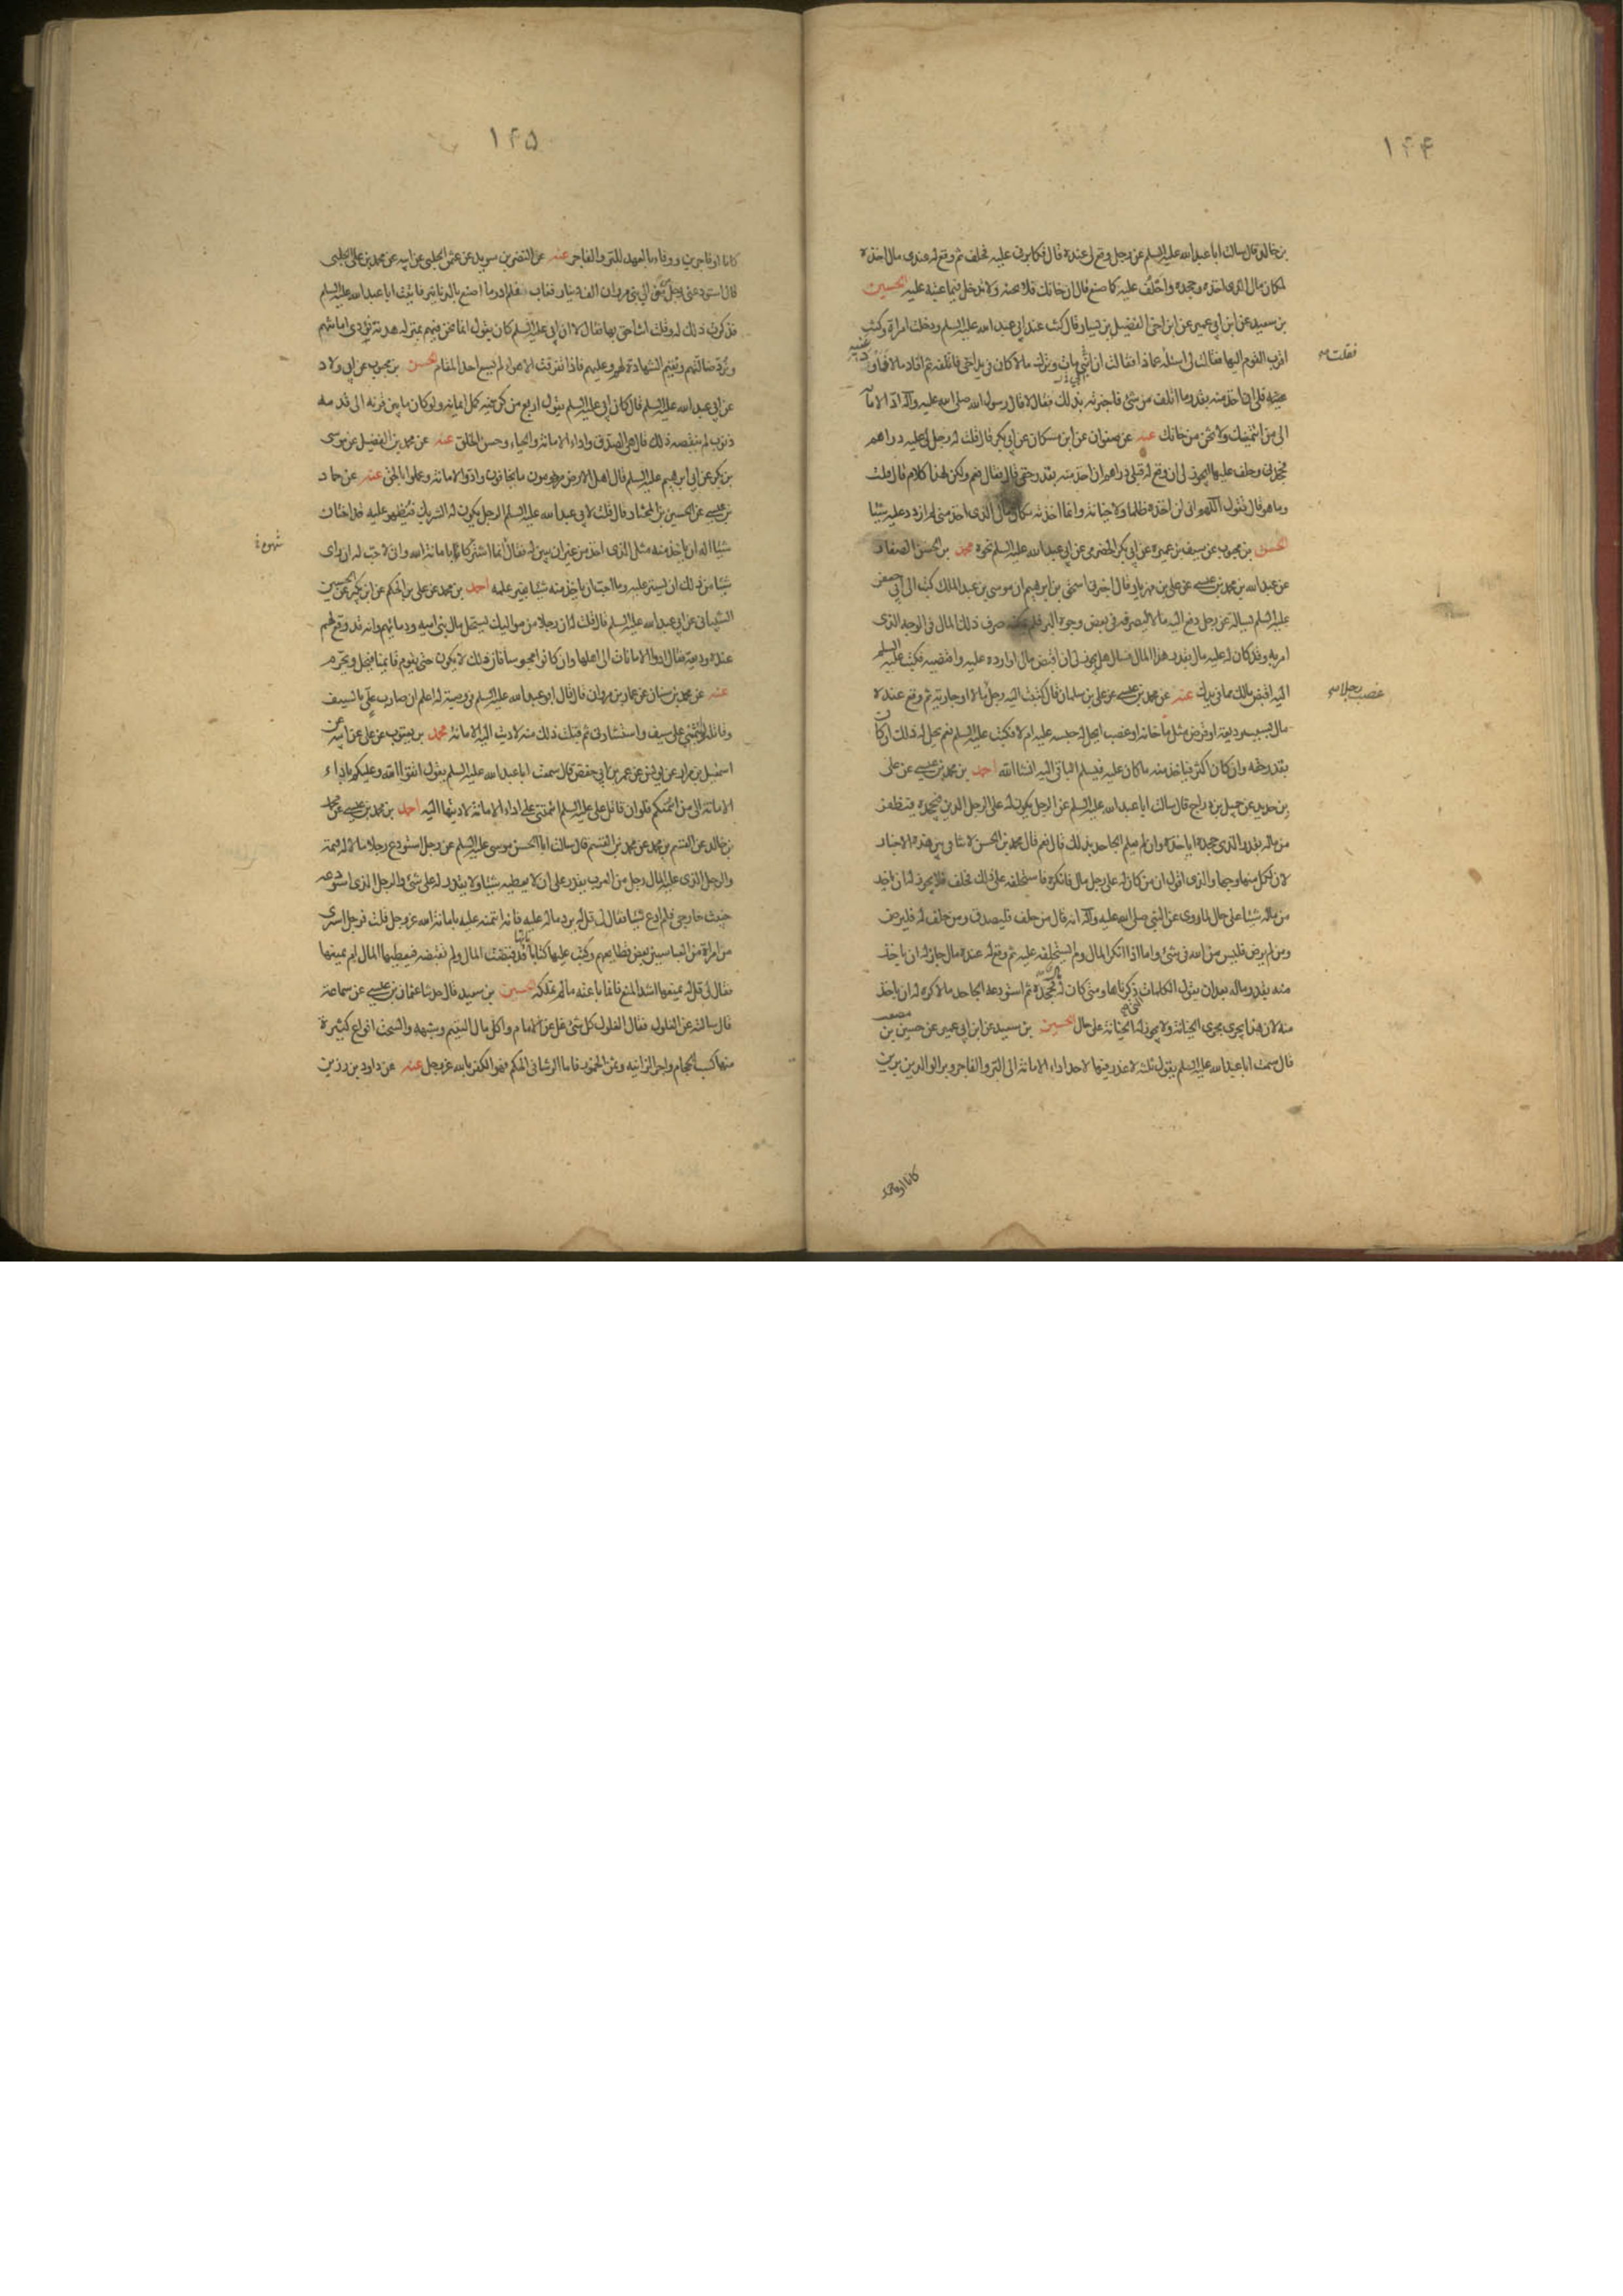 ۱۴۴
بن خالد قال سالت ابا عبد الله عليه السلم عن رجل وقع لى عنده قال فكابرنى عليه فحلف ثم وقع له عندى مال اخذه
لمكان مالى الذى اخذه وجحده واحلف عليه كما صنع قال ان خانك فلا تخنه ولا تدخل فيما عبته عليه الحسين
بن سعيد عن ابن ابى عمير عن ابن اخى الفضيل بن يسار قال كنت عند ابى عبد الله عليه السلم ودخلت امراة وكنت
اقرب القوم اليها فقالت لى اسئله عماذا فقالت ان ابنى مات وترك مالا كان فى يد اخى فاتلفه ثم افاد مالا فاودعنيه
فقلت
فلى ان اخذ منه بقدر ما اتلف من شئ فاخبرته بذلك فقال لا قال رسول الله صلى الله عليه وآله اد الامانه
الى من ائتمنك ولا تخن من خانك عنه عن صفوان عن ابن مسكان عن ابى بكر قال قلت له رجل لى عليه دراهم
فجحدنى وحلف عليها ايجوز لى ان وقع له قبلى دراهم ان اخذ منه بقدر حقى قال فقال نعم ولكن لهذا كلام قال قلت
وما هو قال تقول اللهم انى لن اخذه ظلما ولا خيانة وانما اخذته مكان مالى الذى اخذ منى لم ازدد عليه شيئا
الحسن بن محبوب عن سيف بن عميره عن ابى بكر الحضرمى عن ابى عبد الله عليه السلم نحوه محمد بن الحسن الصفار
عن عبد الله بن محمد بن عيسى عن على بن مهزيار قال اخبرنى اسحق بن ابرهيم ان موسى بن عبد الملك كتب الى ابى جعفر
عليه السلم يساله عن رجل دفع اليه مالا ليصرفه فى بعض وجوه البر فلم يمكنه صرف ذلك المال فى الوجه الذى
امر به وقد كان له عليه مال بقدر هذا المال فسال هل يجوز لى ان اقبض مالى او ارده عليه واقتضيه فكتب عليه السلم
اليه اقبض مالك مما فى يديك عنه عن محمد بن عيسى عن على بن سلمان قال كتبت اليه رجل مالا او جارية ثم وقع عنده
غصب رجلا
مال بسبب وديعة او قرض مثل ما خانه او غصب ايحل له حبسه عليه ام لا فكتب عليه السلم نعم يحل له ذلك ان كان
بقدر حقه وان كان اكثر فياخذ منه ما كان عليه فيسلم الباقى اليه انشا الله احمد بن محمد بن عيسى عن على
بن حديد عن جميل بن دراج قال سالت ابا عبد الله عليه السلم عن الرجل يكون له على الرجل الدين فيجحده فيظفر
من ماله بقدر الذى جحده اياخذه وان لم يعلم الجاحد بذلك قال نعم قال محمد بن الحسن لا تنافى بين هذه الاخبار
لان لكل منها وجها والذى اقول ان من كان له على رجل مال فانكره فاستحلفه على ذلك فحلف فلا يجوز له ان ياخذ
من ماله شيئا على حال لما روى عن النبى صلى الله عليه وآله انه قال من حلف فليصدق ومن حلف له فليرض
ومن لم يرض فليس من الله فى شئ واما اذا انكر المال ولم يستحلفه عليه ثم وقع له عنده مال جاز له ان ياخذ
منه بقدر ماله بعد ان يقول الكلمات ذكرناها ومتى كان له فجحده ثم استودعه الجاحد مالا كره له ان ياخذ
منه لان هذا يجرى مجرى الخيانة ولا يجوز له الخيانة على حال الحسين بن سعيد عن ابن ابى عمير عن حسين بن مصعب
قال سمعت ابا عبد الله عليه السلم يقول ثلثه لا عذر فيها لاحد اداء الامانة الى البر والفاجر وبر الوالدين برين
۱۴۵
كانا او فاجرين ووفاء بالعهد للبر والفاجر عنه عن النضر بن سويد عن الحلبى عن ابيه عن محمد بن على الحلبى
قال استودعنى رجل من موالى بنى مروان الف دينار فغاب فلم ادر ما اصنع بالدنانير فاتيت ابا عبد الله عليه السلم
فذكرت ذلك له وقلت انت احق بها فقال لا ان ابى عليه السلم كان يقول انما نحن فيهم بمنزله هدنة نؤدى امانتهم
ونرد ضالتهم ونقيم الشهادة لهم وعليهم فاذا تفرقت الاهواء لم يسع احد المقام الحسن بن محبوب عن ابى ولاد
عن ابى عبد الله عليه السلم قال كان ابى عليه السلم يقول اربع من كن فيه كمل ايمانه ولو كان ما بين قرنه الى قدمه
ذنوب لم ينقصه ذلك قال هى الصدق واداء الامانة والحياء وحسن الخلق عنه عن محمد بن الفضيل عن موسى
بن بكر عن ابى ابرهيم عليه السلم قال اهل الارض مرحومون ما يخافون وادوا الامانة وعملوا بالحق عنه عن حماد
بن عيسى عن الحسين بن المختار قال قلت لابى عبد الله عليه السلم الرجل يكون له الشريك فيظهر عليه قد اختان
شيئا اله ان ياخذ منه مثل الذى اخذ من غير ان يبين له فقال انما اشتركا بامانة الله وانى لاحب له ان راى
شيئا من ذلك ان يستر عليه وما احب ان ياخذ منه شيئا بغير علمه احمد بن محمد عن على بن الحكم عن ابن بكير عن الحسين
الشيبانى عن ابى عبد الله عليه السلم قال قلت له ان رجلا من مواليك يستحل مال بنى اميه ودمائهم وانه قد وقع لهم
عنده وديعة فقال ادوا الامانات الى اهلها وان كانوا مجوسا فان ذلك لا يكون حتى يقوم قائمنا فيحل ويحرم
عنه عن محمد بن سنان عن عمار بن مروان قال قال ابو عبد الله عليه السلم فى وصية له اعلم ان ضارب على بالسيف
وقاتله لو ائتمننى على سيف واستشارنى ثم قبلت ذلك منه لاديت اليه الامانة محمد بن يعقوب عن على عن ابيه عن
اسمعيل بن مرار عن يونس عن عمر بن ابى حفص قال سمعت ابا عبد الله عليه السلم يقول اتقوا الله وعليكم باداء
الامانة الى من ائتمنكم فلو ان قاتل على عليه السلم ائتمننى على اداء الامانة لاديتها اليه احمد بن محمد بن عيسى عن محمد
بن خالد عن القسم بن محمد عن محمد بن القسم قال سالت ابا الحسن موسى عليه السلم عن رجل استودع رجلا مالا له قيمة
والرجل الذى عليه المال رجل من العرب يقدر على ان لا يعطيه شيئا ولا يقدر له على شئ والرجل الذى استودعه
خبيث خارجى فلم ادع شيئا فقال لى قل له يرد ماله عليه فانه ائتمنه عليه بامانة الله عز وجل قلت فرجل اشترى
من امراة من العباسيين بعض قطايعهم وكتب عليها كتابا قد قبضت المال ولم تقبضه فيعطيها المال ام يمنعها
فقال لى قل له يمنعها اشد المنع فانما باعته ما لم تملكه الحسين بن سعيد قال حدثنا عثمان بن عيسى عن سماعة
قال سالته عن الغلول فقال الغلول كل شئ غل عن الامام واكل مال اليتيم وشبهه والسحت انواع كثيرة
منها كسب الحجام واجر الزانيه وثمن الخمر فاما الرشا فى الحكم فهو الكفر بالله عز وجل عنه عن داود بن رزين